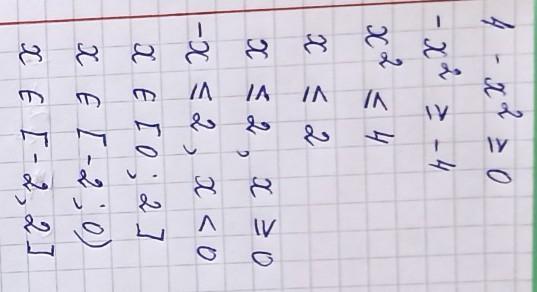 4 - x² ≥ 0
-x² ≥ -4
x² ≤ 4
x ≤ 2
x ≤ 2, x ≥ 0
-x ≤ 2, x < 0
x ∈ [0; 2]
x ∈ [-2; 0)
x ∈ [-2, 2]